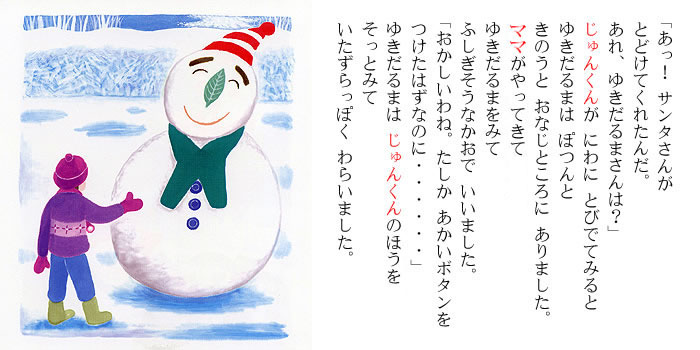 「あっ！ サンタさんが
とどけてくれたんだ。
あれ、ゆきだるまさんは？」
じゅんくんが にわに とびでてみると
ゆきだるまは ぽつんと
きのうと おなじところに ありました。
ママがやってきて
ゆきだるまをみて
ふしぎそうなかおで いいました。
「おかしいわね。たしか あかいボタンを
つけたはずなのに・・・・・・」
ゆきだるまは じゅんくんのほうを
そっとみて
いたずらっぽく わらいました。